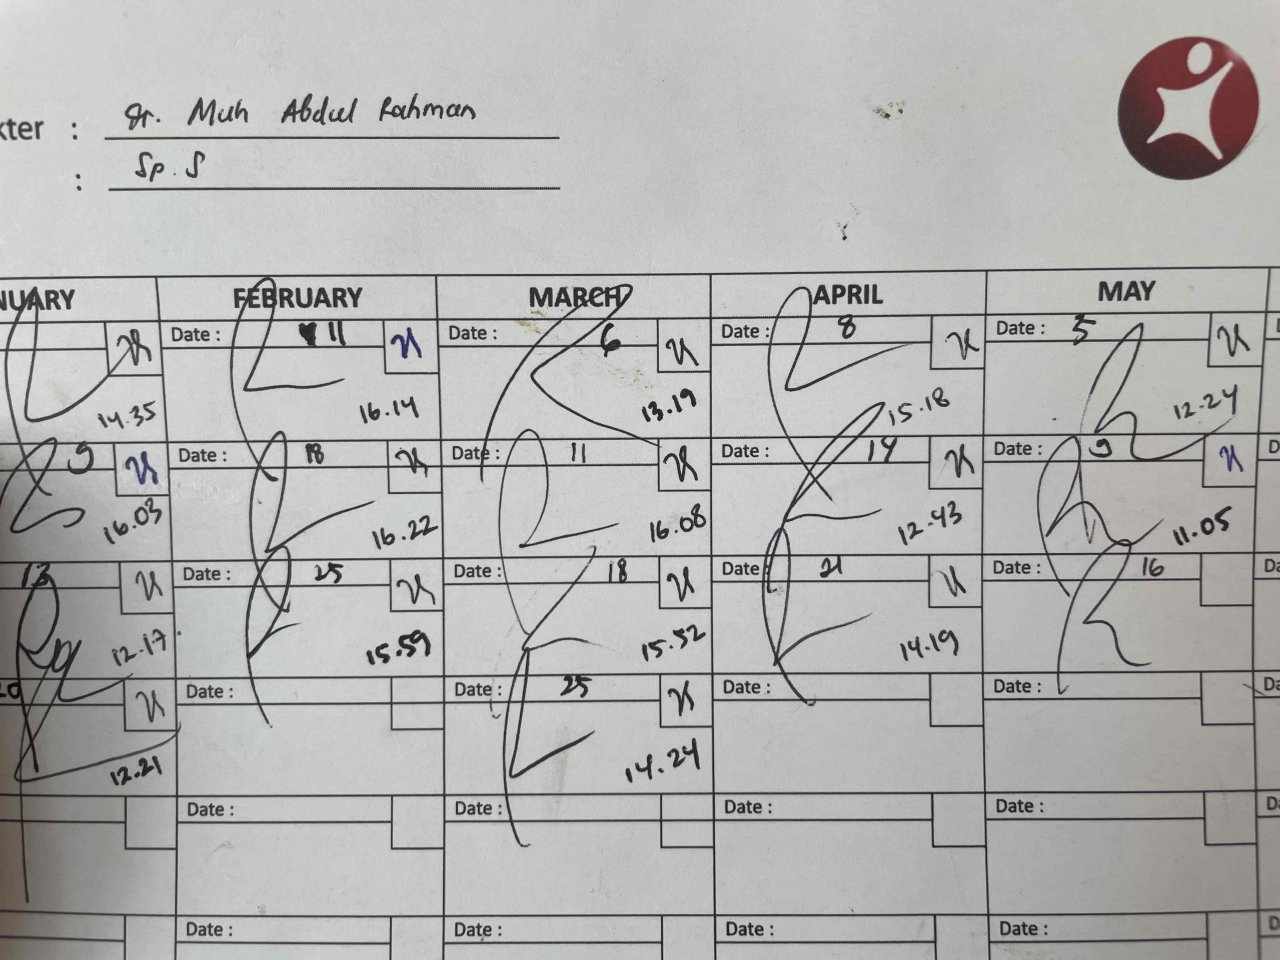 kter : dr. Muh Abdul Rahman
: Sp. S
NUARY FEBRUARY MARCH APRIL MAY
Date : 11 Date : 6 Date : 8 Date : 5
14.35 16.14 13.19 15.18 12.24
9 Date : 18 Date : 11 Date : 14 Date : 9
16.03 16.22 16.08 12.43 11.05
13 Date : 25 Date : 18 Date : 21 Date : 16 Da
12.17 15.59 15.52 14.19
20 Date : Date : 25 Date : Date : Da
12.21 14.24
Date : Date : Date : Date : D
Date : Date : Date : Date : D